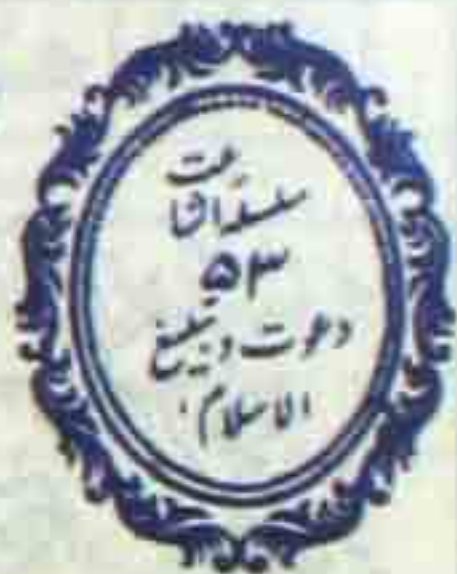 سلسلہ اشاعت
۵۳
دعوت و تبلیغ
الاسلام